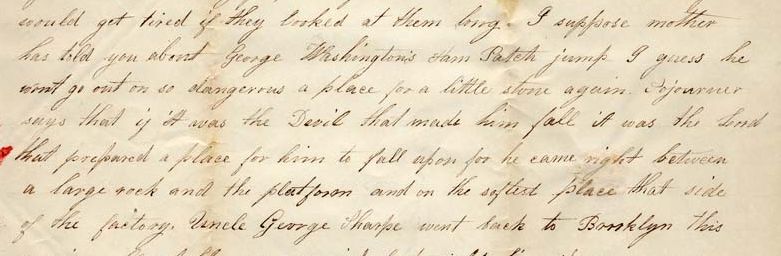 would get tired if they looked at them long. I suppose mother
has told you about George Washington's Sam Patch jump I guess he
wont go out on so dangerous a place for a little stone again. Sojourner
says that if it was the Devil that made him fall it was the Lord
that prepared a place for him to fall upon for he came right between
a large rock and the platform and on the softest place that side
of the factory. Uncle George Sharpe went back to Brooklyn this